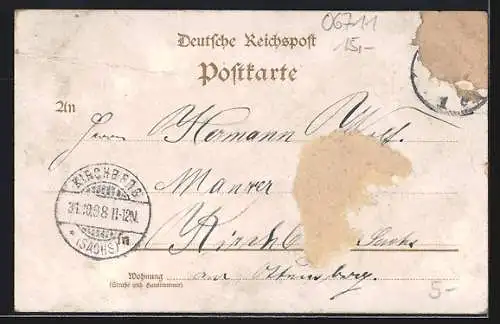 06711
15,-
Deutsche Reichspost
Postkarte
An
Herrn Hermann Wolf
KIRCHBERG
Maurer
31.10.98 11-12N.
(SACHS)
Kirchb Sachs
Wohnung am
(Straße und Hausnummer)
5-